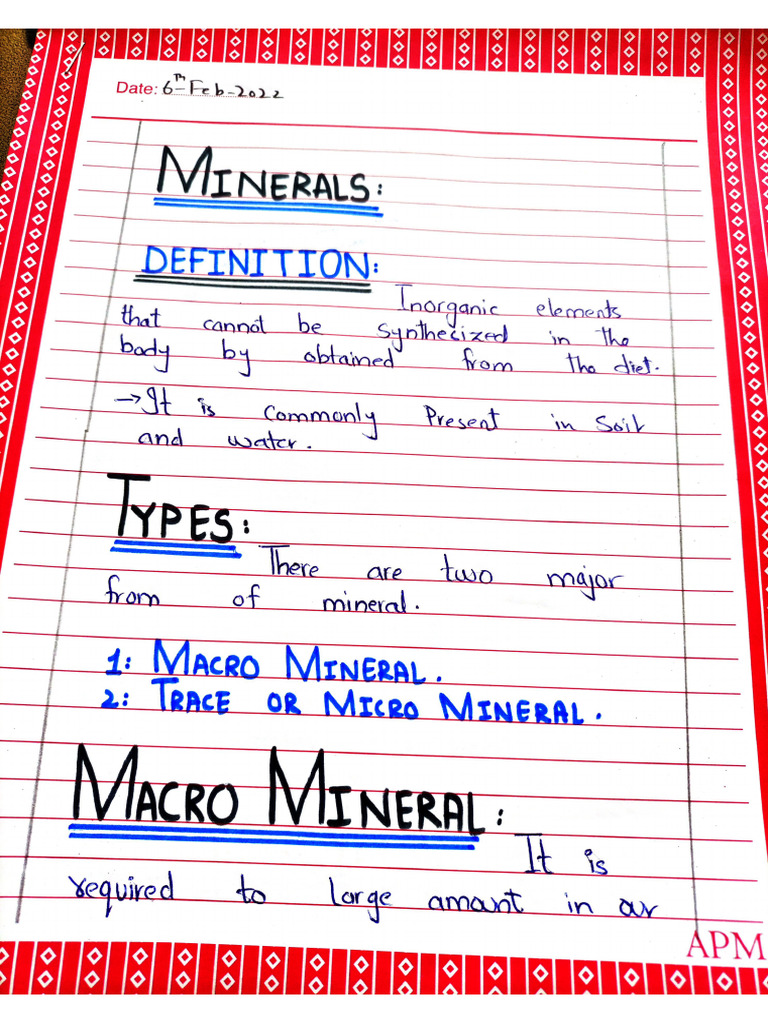 Date: 6th-Feb-2022
MINERALS:
DEFINITION:
Inorganic elements
that cannot be synthecized in the
body by obtained from the diet.
→It is commonly Present in Soil
and water.
TYPES:
There are two major
from of mineral.
1: MACRO MINERAL.
2: TRACE OR MICRO MINERAL.
MACRO MINERAL:
It is
required to large amount in our
APM